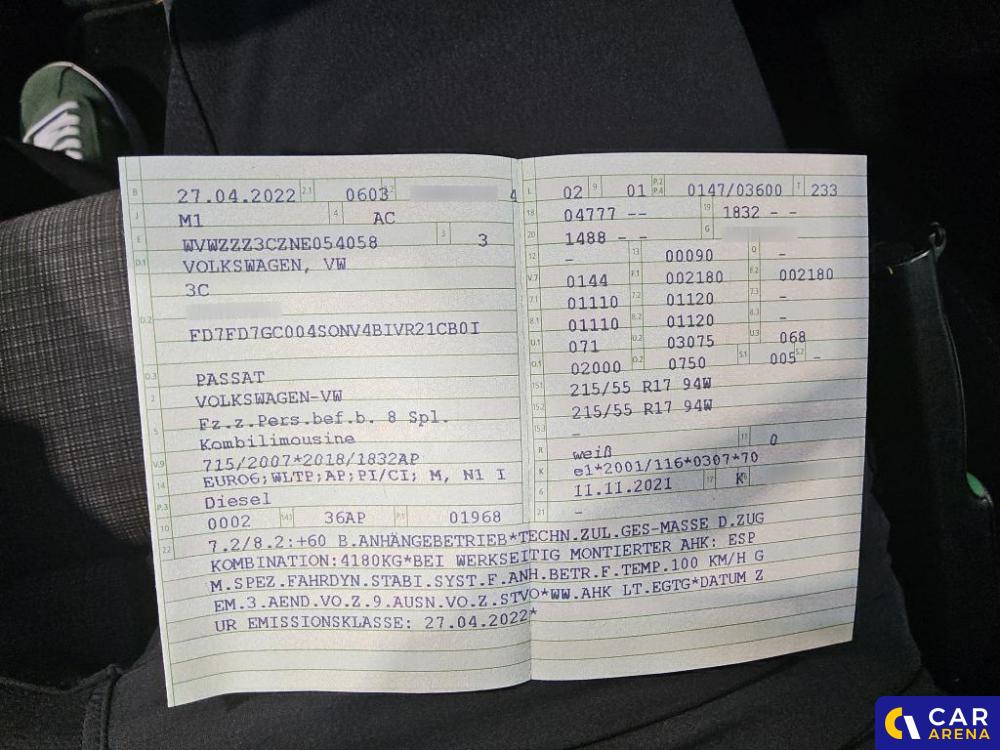 B 27.04.2022 2.1 0603 2.2 4
J M1 4 AC
E WVWZZZ3CZNE054058 3 3
D.1 VOLKSWAGEN, VW
3C
D.2
FD7FD7GC004SONV4BIVR21CB0I
D.3 PASSAT
2 VOLKSWAGEN-VW
5 Fz.z.Pers.bef.b. 8 Spl.
Kombilimousine
V.9 715/2007*2018/1832AP
14 EURO6;WLTP;AP;PI/CI; M, N1 I
P.3 Diesel
10 0002 14.1 36AP P.1 01968
L 02 9 01 P.2 P.4 0147/03600 T 233
18 04777 -- 19 1832 - -
20 1488 - - G
12 - 13 00090 Q -
V.7 0144 F.1 002180 F.2 002180
7.1 01110 7.2 01120 7.3 -
8.1 01110 8.2 01120 8.3 -
U.1 071 U.2 03075 U.3 068
O.1 02000 O.2 0750 S.1 005 S.2 -
15.1 215/55 R17 94W
15.2 215/55 R17 94W
15.3 -
R weiß 11 0
K e1*2001/116*0307*70
6 11.11.2021 17 K 16
21 -
22 7.2/8.2:+60 B.ANHÄNGEBETRIEB*TECHN.ZUL.GES-MASSE D.ZUG
KOMBINATION:4180KG*BEI WERKSEITIG MONTIERTER AHK: ESP
M.SPEZ.FAHRDYN.STABI.SYST.F.ANH.BETR.F.TEMP.100 KM/H G
EM.3.AEND.VO.Z.9.AUSN.VO.Z.STVO*WW.AHK LT.EGTG*DATUM Z
UR EMISSIONSKLASSE: 27.04.2022*
CAR
ARENA